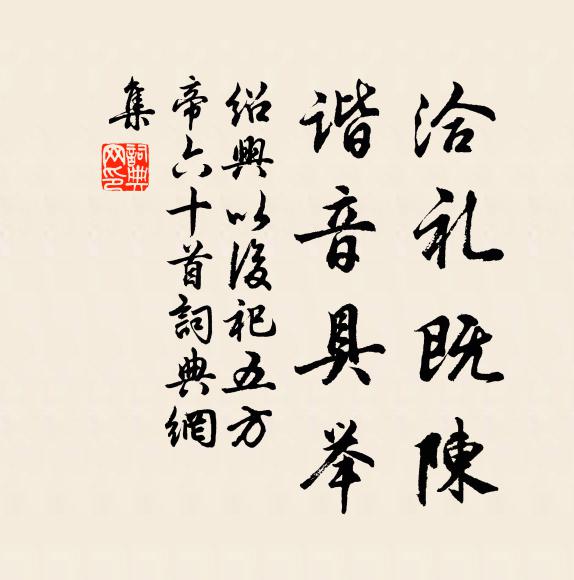 洽礼既陳
谐音具举
绍興以後祀五方
帝六十首詞典網
集
詞典網印